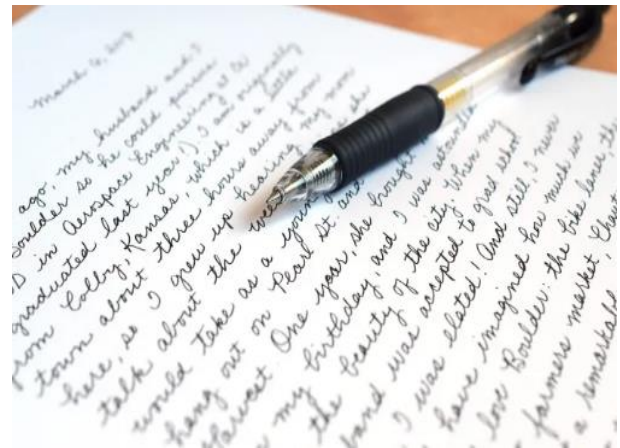 March 6, 20
ago, my husband and I
Boulder so he could pursue
D in Aerospace Engineering at C
graduated last year!). I am originally
from Colby, Kansas, which is a little
town about three hours away from
here, so I grew up hearing my mom
talk about the
would take as a young
hang out on Pearl St. and
Market. One year, she brought
my birthday, and I was
the beauty of the city. When my
band was accepted to grad school
I was elated! And still, I never
have imagined how much we
love Boulder: the bike lanes, the
farmers market,
a remarkabl